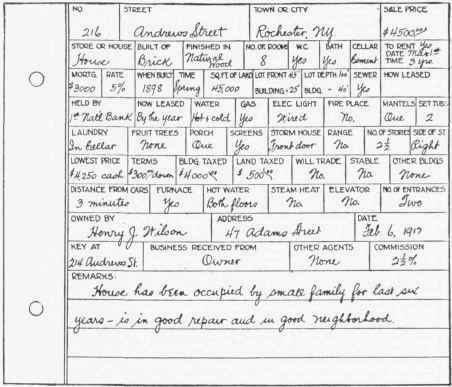 NO. STREET TOWN OR CITY SALE PRICE
216 Andrews Street Rochester, NY $4500.00
STORE OR HOUSE BUILT OF FINISHED IN NO. OF ROOMS W.C. BATH CELLAR TO RENT Yes
House Brick Natural Wood 8 Yes Yes Cement DATE Mar 1st TIME 3 yrs
MORTG. RATE WHEN BUILT TIME SQ. FT. OF LAND LOT FRONT 45' LOT DEPTH SEWER HOW LEASED
$3000 5% 1898 Spring 45,000 BUILDING - 25' BLDG. - 40' Yes
HELD BY NOW LEASED WATER GAS ELEC LIGHT FIRE PLACE MANTELS SET TUBS
1st Nat'l Bank By the year Hot & cold Yes Wired No. One 2
LAUNDRY FRUIT TREES PORCH SCREENS STORM HOUSE RANGE NO. OF STORIES SIDE OF ST.
In Cellar None One Yes Front door No 2½ Right
LOWEST PRICE TERMS BLDG TAXED LAND TAXED WILL TRADE STABLE OTHER BLDGS
$4250 cash $300 down $4000 $500 No. No None
DISTANCE FROM CARS FURNACE HOT WATER STEAM HEAT ELEVATOR NO. OF ENTRANCES
3 minutes Yes Both floors No No. Two
OWNED BY ADDRESS DATE
Henry J. Wilson 47 Adams Street Feb. 6, 1917
KEY AT BUSINESS RECEIVED FROM OTHER AGENTS COMMISSION
214 Andrews St. Owner None 2½%
REMARKS:
House has been occupied by small family for last six
years - is in good repair and in good neighborhood.